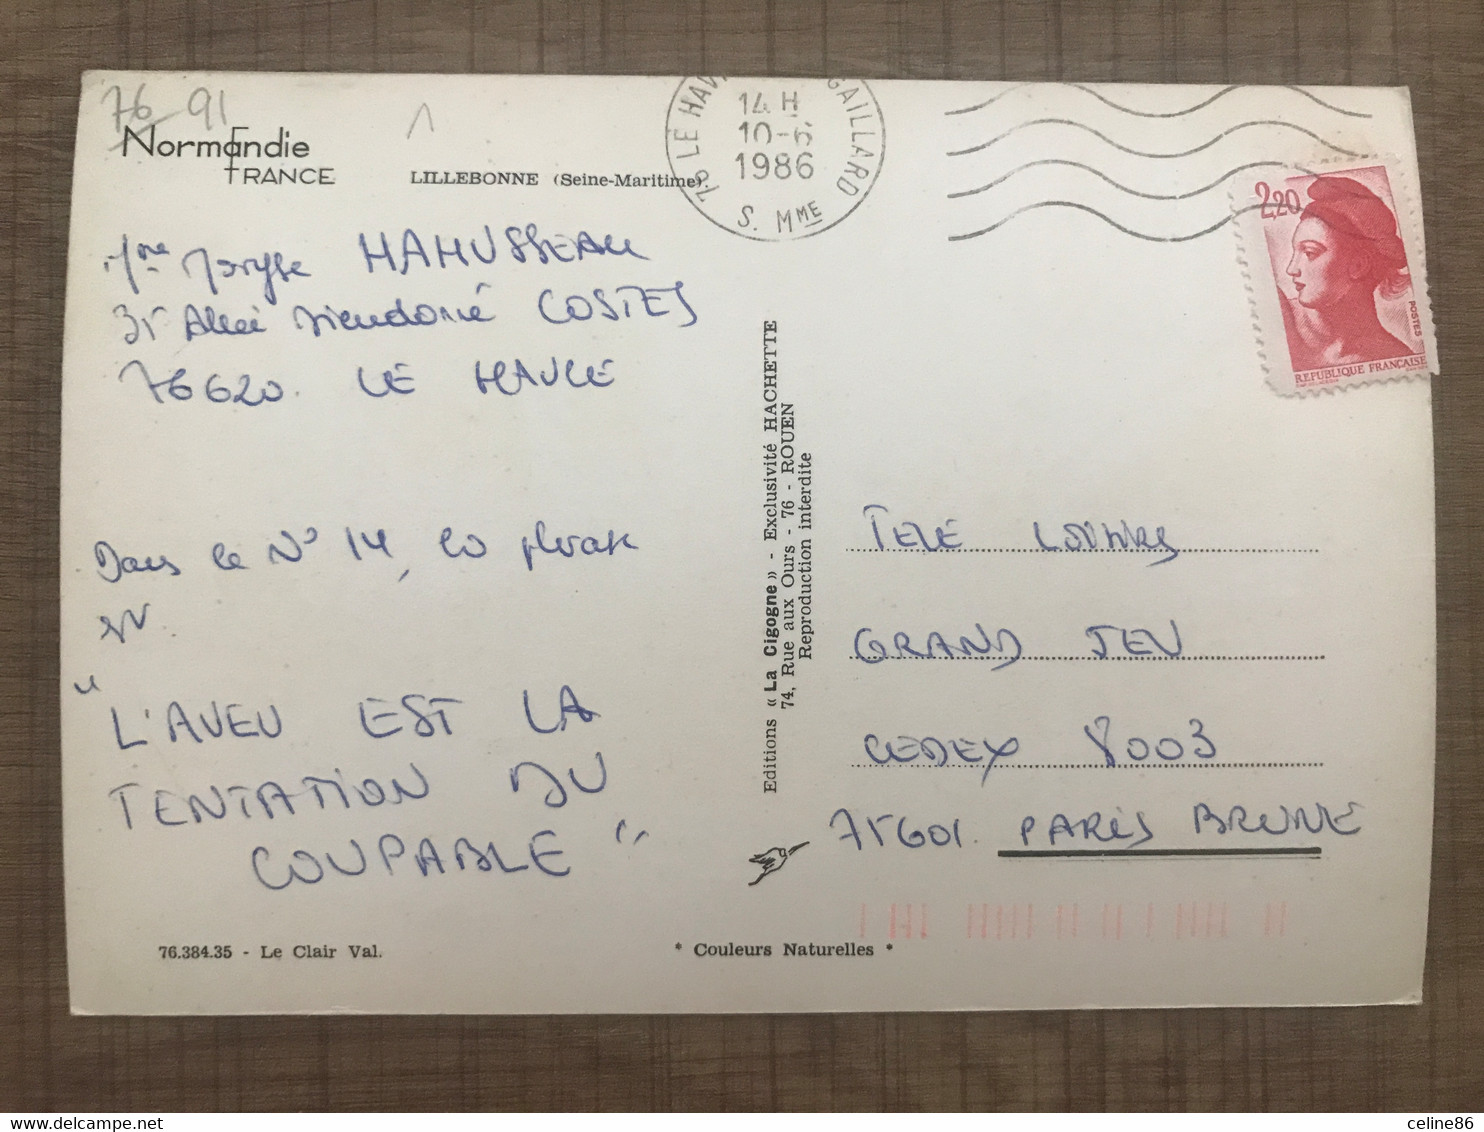 76 91
Normandie
FRANCE
LILLEBONNE (Seine-Maritime).
76 LE HAV GAILLARD
14 H
10-6
1986
S. MME
2,20
POSTES
REPUBLIQUE FRANCAISE
Mme Maryse HAMUSSEAU
35 Allée Dieudonné COSTES
76620. LE HAVRE
Dans le N° 14, la phrase
est
" L'AVEU EST LA
TENTATION DU
COUPABLE "
Editions « La Cigogne » - Exclusivité HACHETTE
74, Rue aux Ours - 76 - ROUEN
Reproduction interdite
TELE LOISIRS
GRAND JEU
CEDEX 8003
75601. PARIS BRUNE
76.384.35 - Le Clair Val.
* Couleurs Naturelles *
delcampe.net
celine86